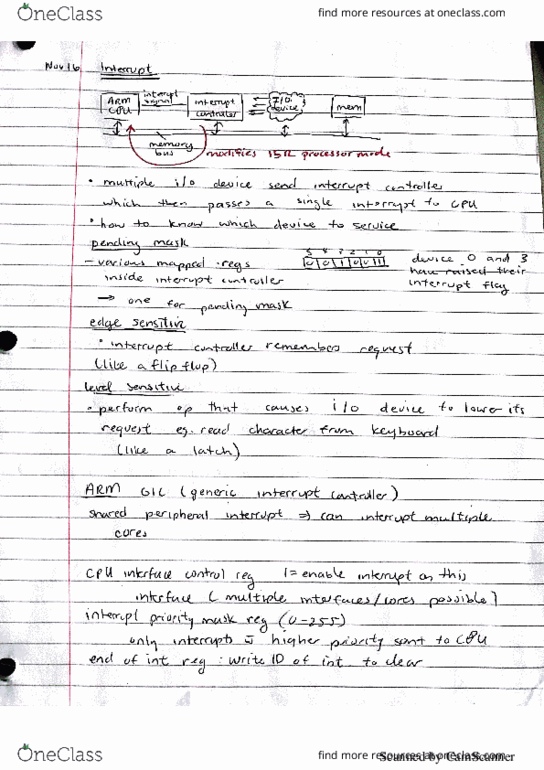 OneClass
find more resources at oneclass.com
Nov 16 Interrupt
ARM CPU
interrupt signal
interrupt controller
I/O device
mem
memory bus
modifies ISR processor mode
• multiple i/o device send interrupt controller
which then passes a single interrupt to CPU
• how to know which device to service
pending mask
- various mapped regs
inside interrupt controller
5 4 3 2 1 0
device 0 and 3
have raised their
interrupt flag
→ one for pending mask
edge sensitive
• interrupt controller remembers request
(like a flip flop)
level sensitive
• perform op that causes i/o device to lower its
request eg. read character from keyboard
(like a latch)
ARM GIC (generic interrupt controller)
shared peripheral interrupt ⇒ can interrupt multiple
cores
CPU interface control reg 1 = enable interrupt on this
interface (multiple interfaces/cores possible)
interrupt priority mask reg (0-255)
only interrupts higher priority sent to CPU
end of int reg : write ID of int to clear
OneClass
find more resources at oneclass.com
Scanned by CamScanner